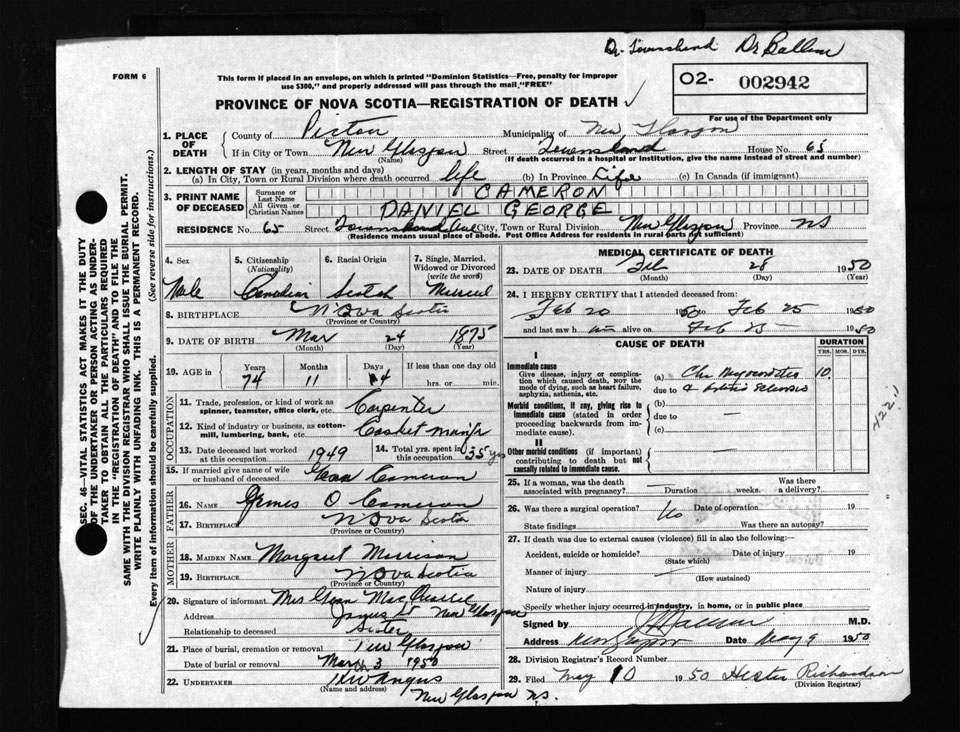 Dr. Townshend Dr Ballem
FORM 6
This form if placed in an envelope, on which is printed "Dominion Statistics—Free, penalty for improper use $300," and properly addressed will pass through the mail "FREE"
02- 002942
For use of the Department only
PROVINCE OF NOVA SCOTIA—REGISTRATION OF DEATH
1. PLACE OF DEATH County of Pictou Municipality of New Glasgow
If in City or Town New Glasgow Street Townshend House No. 65
(Name) (If death occurred in a hospital or institution, give the name instead of street and number)
2. LENGTH OF STAY (in years, months and days)
(a) In City, Town or Rural Division where death occurred life (b) In Province Life (c) In Canada (if immigrant)
3. PRINT NAME OF DECEASED Surname or Last Name CAMERON
All Given or Christian Names DANIEL GEORGE
RESIDENCE No. 65 Street Townshend Ave City, Town or Rural Division New Glasgow Province NS
(Residence means usual place of abode. Post Office Address for residents in rural parts not sufficient)
4. Sex 5. Citizenship (Nationality) 6. Racial Origin 7. Single, Married, Widowed or Divorced (write the word)
Male Canadian Scotch Married
8. BIRTHPLACE Nova Scotia
(Province or Country)
9. DATE OF BIRTH Mar 24 1875
(Month) (Day) (Year)
10. AGE in Years Months Days If less than one day old
74 11 4 hrs. or min.
OCCUPATION
11. Trade, profession, or kind of work as spinner, teamster, office clerk, etc. Carpenter
12. Kind of industry or business, as cotton-mill, lumbering, bank, etc. Casket
13. Date deceased last worked at this occupation 1949 14. Total yrs. spent in this occupation 35 yrs
15. If married give name of wife or husband of deceased Cameron
FATHER
16. NAME James O Cameron
17. BIRTHPLACE Nova Scotia
(Province or Country)
MOTHER
18. MAIDEN NAME Margaret Morrison
19. BIRTHPLACE Nova Scotia
(Province or Country)
20. Signature of informant Mrs
Address James St New Glasgow
Relationship to deceased Sister
21. Place of burial, cremation or removal New Glasgow
Date of burial or removal March 3 1950
22. UNDERTAKER Angus
(Name and address)
New Glasgow N.S.
MEDICAL CERTIFICATE OF DEATH
23. DATE OF DEATH Feb 28 1950
(Month) (Day)
24. I HEREBY CERTIFY that I attended deceased from:
Feb 20 1950 to Feb 25 1950
and last saw him alive on Feb 25 1950
CAUSE OF DEATH DURATION
YRS. MOR. DYS.
I
Immediate cause
Give disease, injury or complication which caused death, NOT the mode of dying, such as heart failure, asphyxia, asthenia, etc.
(a) Chr Myocarditis 10
due to
Morbid conditions, if any, giving rise to immediate cause (stated in order proceeding backwards from immediate cause).
(b) —
due to —
(c) —
II
Other morbid conditions (if important) contributing to death but not causally related to immediate cause. —
422.1
25. If a woman, was the death associated with pregnancy? — Duration weeks. Was there a delivery?
26. Was there a surgical operation? No Date of operation 19
State findings Was there an autopsy?
27. If death was due to external causes (violence) fill in also the following:—
Accident, suicide or homicide? Date of injury 19
(State which)
Manner of injury
(How sustained)
Nature of injury
Specify whether injury occurred in industry, in home, or in public place
Signed by M.D.
Address New Glasgow Date May 9 1950
28. Division Registrar's Record Number
29. Filed May 10 1950 Hester Richardson
(Division Registrar)
SEC. 46—VITAL STATISTICS ACT MAKES IT THE DUTY
OF THE UNDERTAKER OR PERSON ACTING AS UNDER-
TAKER TO OBTAIN ALL THE PARTICULARS REQUIRED
IN THE "REGISTRATION OF DEATH" AND TO FILE THE
SAME WITH THE DIVISION REGISTRAR WHO SHALL ISSUE THE BURIAL PERMIT.
WRITE PLAINLY WITH UNFADING INK. THIS IS A PERMANENT RECORD.
Every item of information should be carefully supplied. (See reverse side for instructions.)